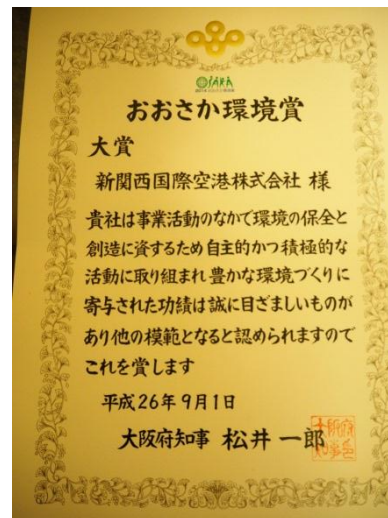 おおさか環境賞
大賞
新関西国際空港株式会社 様
貴社は事業活動のなかで環境の保全と
創造に資するため自主的かつ積極的な
活動に取り組まれ豊かな環境づくりに
寄与された功績は誠に目ざましいものが
あり他の模範となると認められますので
これを賞します
平成26年9月1日
大阪府知事 松井 一郎